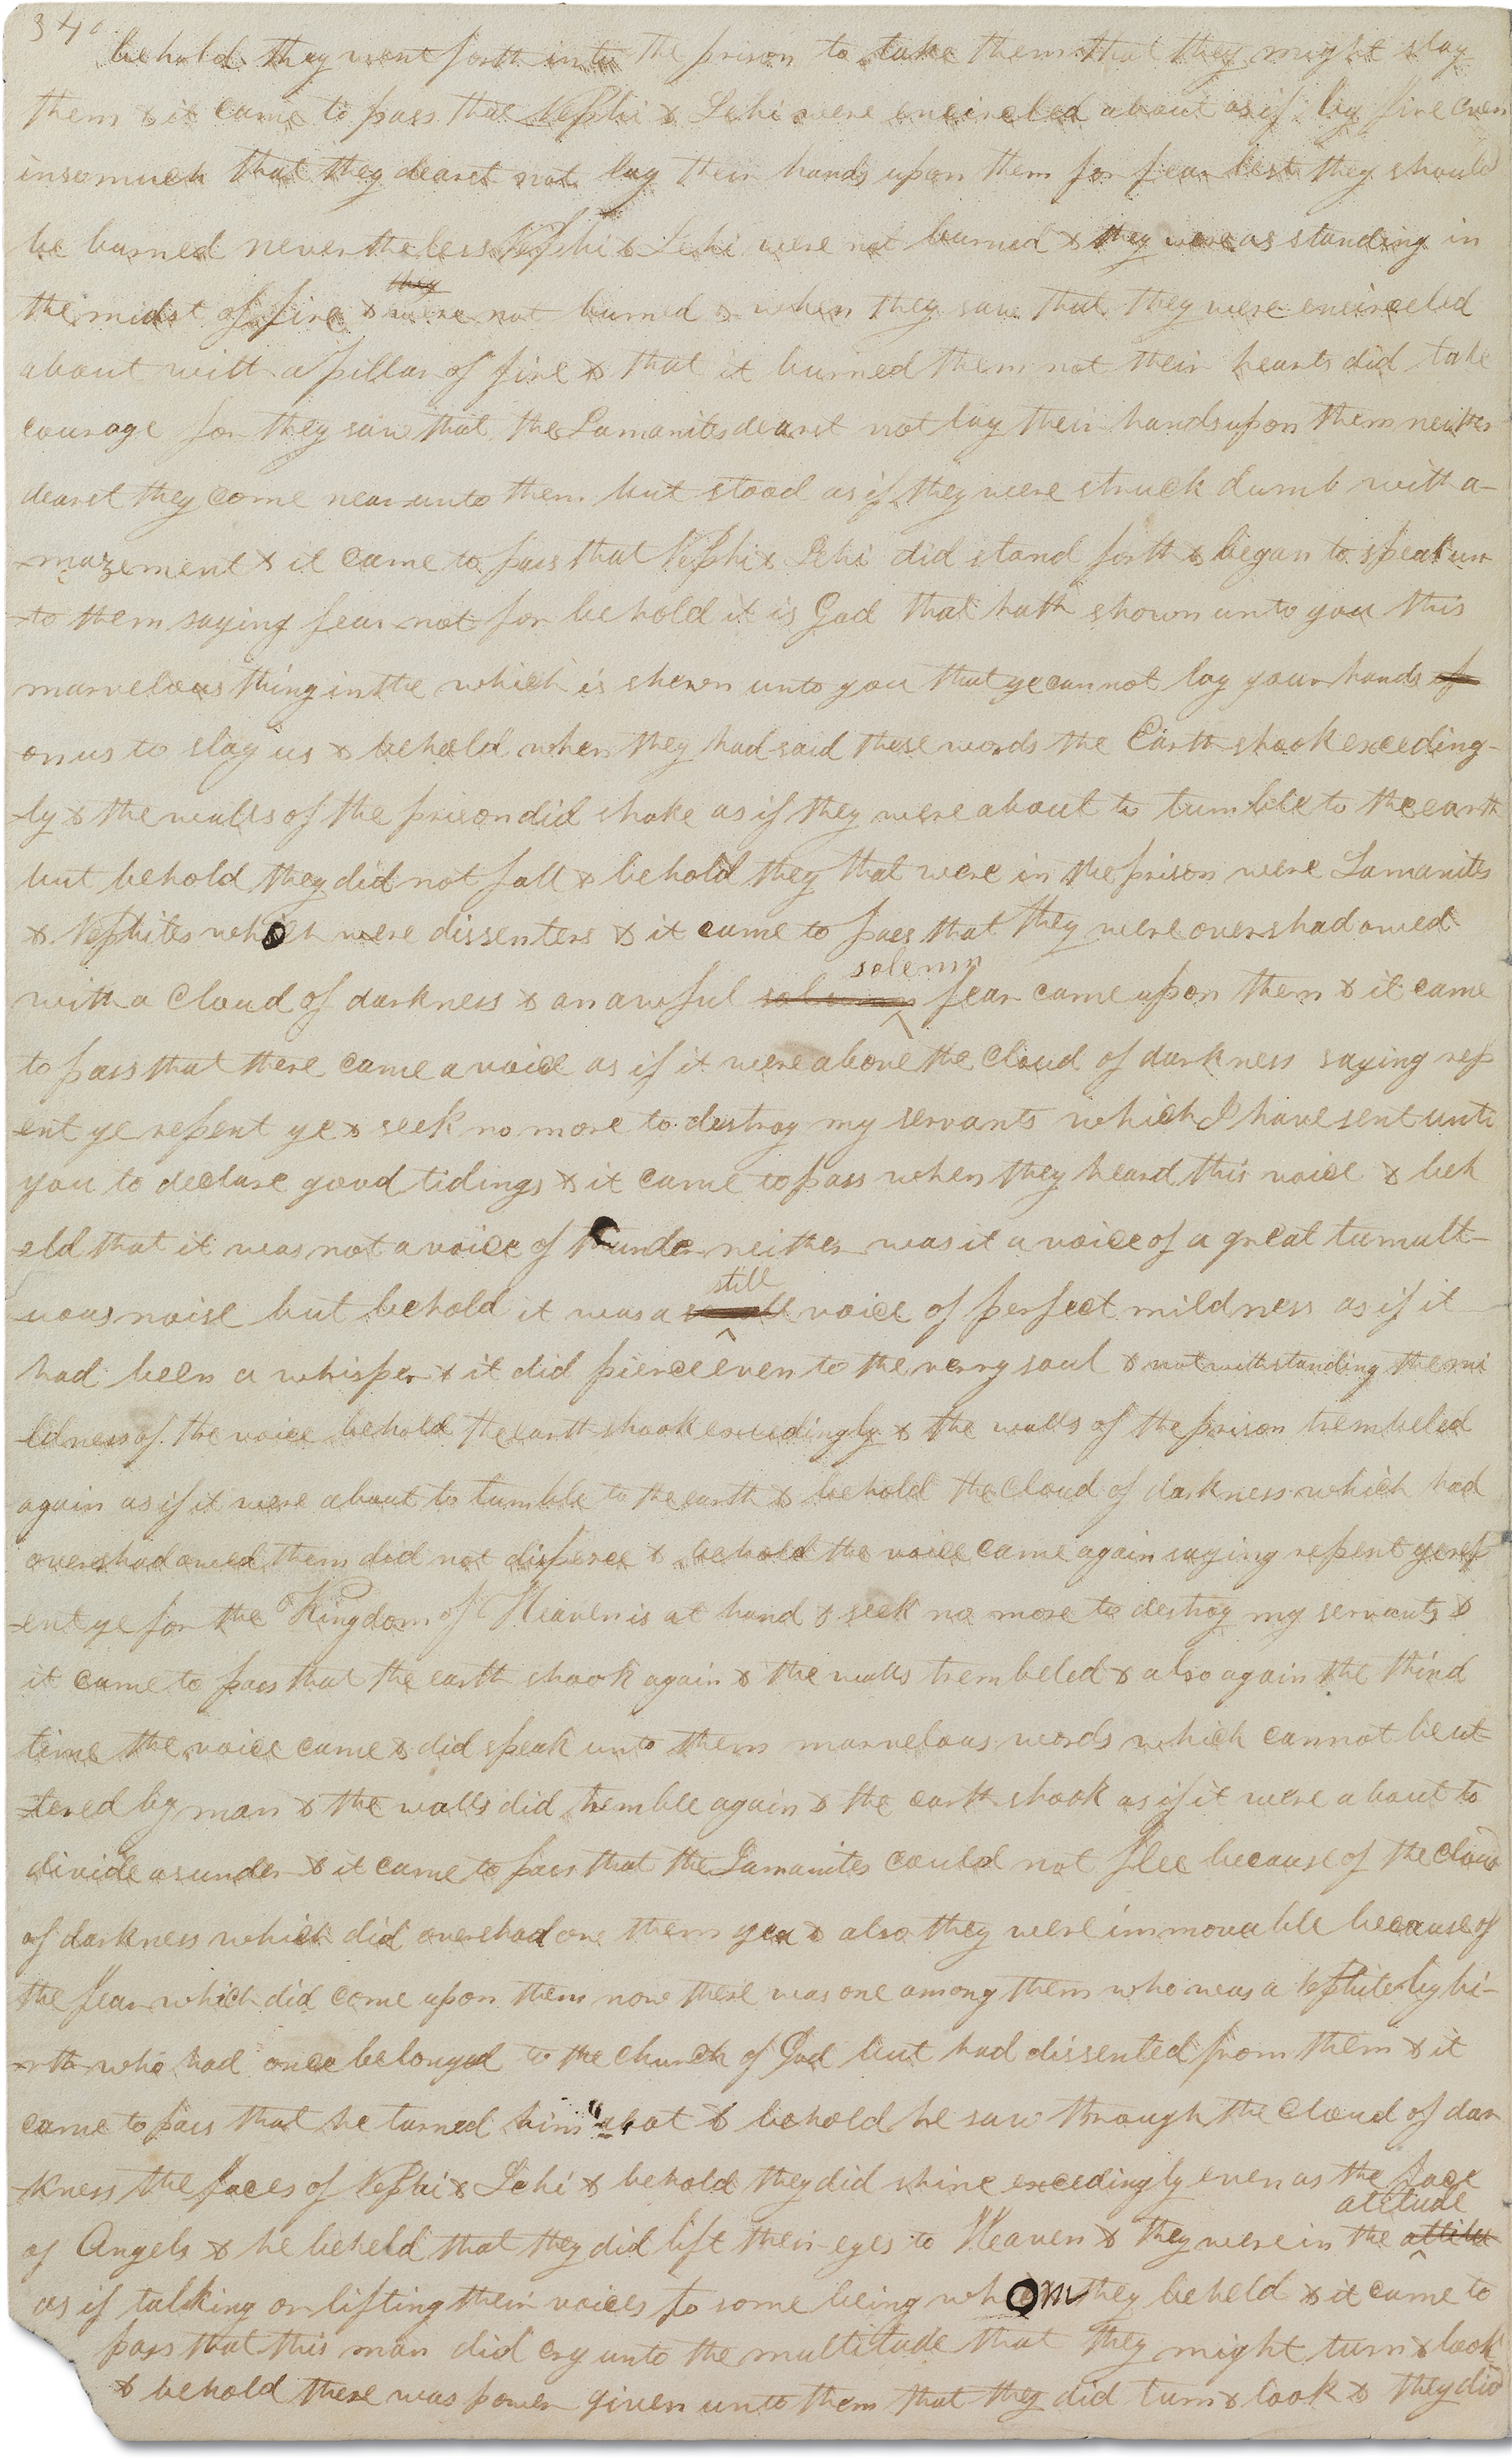 340
behold they went forth into the prison to take them that they might slay
them & it came to pass that Nephi & Lehi were encircled about as if by fire even
insomuch that they dearst not lay their hands upon them for fear lest they should
be burned nevertheless Nephi & Lehi were not burned & they were as standing in
they
the midst of fire & were not burned & when they saw that they were encirceled
about with a pillar of fire & that it burned them not their hearts did take
courage for they saw that the Lamanites dearst not lay their hands upon them neither
dearst they come near unto them but stood as if they were struck dumb with a-
-mazement & it came to pass that Nephi & Lehi did stand forth & began to speak un
-to them saying fear not for behold it is God that hath shown unto you this
marvelous thing in the which is shewn unto you that ye cannot lay your hands
on us to slay us & behold when they had said these words the Earth shook exceeding-
-ly & the walls of the prison did shake as if they were about to tumble to the earth
but behold they did not fall & behold they that were in the prison were Lamanites
& Nephites who were dissenters & it came to pass that they were overshadowed
solemn
with a Cloud of darkness & an awful fear came upon them & it came
to pass that there came a voice as if it were above the Cloud of darkness saying rep
ent ye repent ye & seek no more to destroy my servants which I have sent unto
you to declare good tidings & it came to pass when they heard this voice & beh
-eld that it was not a voice of thunder neither was it a voice of a great tumult-
still
-uous noise but behold it was a voice of perfect mildness as if it
had been a whisper & it did pierce even to the very soul & notwithstanding the mi
-ldness of the voice behold the earth shook exceedingly & the walls of the prison trembeled
again as if it were about to tumble to the earth & behold the Cloud of darkness which had
overshadowed them did not disperse & behold the voice came again saying repent ye rep
-ent ye for the Kingdom of Heaven is at hand & seek no more to destroy my servants &
it came to pass that the earth shook again & the walls trembeled & also again the third
time the voice came & did speak unto them marvelous words which cannot be ut-
-tered by man & the walls did tremble again & the earth shook as if it were about to
divide asunder & it came to pass that the Lamanites could not flee because of the Cloud
of darkness which did overshadow them yea & also they were immovable because of
the fear which did come upon them now there was one among them who was a Nephite by bi-
-rth who had once belonged to the church of God but had dissented from them & it
came to pass that he turned him about & behold he saw through the Cloud of dar
-kness the faces of Nephi & Lehi & behold they did shine exceedingly even as the face
atitude
of Angels & he beheld that they did lift their eyes to Heaven & they were in the
as if talking or lifting their voices to some being whom they beheld & it came to
pass that this man did cry unto the multitude that they might turn & look
& behold there was power given unto them that they did turn & look & they did